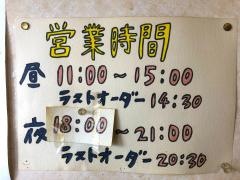 営業時間
昼 11:00～15:00
ラストオーダー 14:30
夜 18:00～21:00
ラストオーダー 20:30